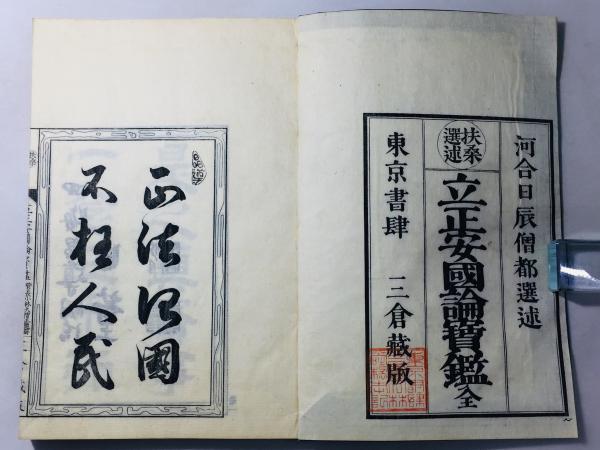 河合日辰僧都選述
扶桑
選述
立正安國論寶鑑 全
東京書肆 三倉藏版
正法治國
不枉人民